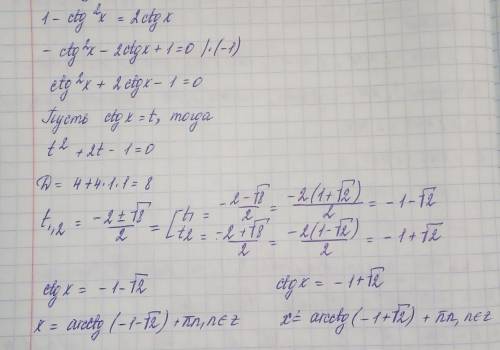 1 - ctg²x = 2ctgx
- ctg²x - 2ctgx + 1 = 0 /·(-1)
ctg²x + 2ctgx - 1 = 0
Пусть ctgx = t, тогда
t² + 2t - 1 = 0
D = 4 + 4·1·1 = 8
t₁,₂ = (-2 ± √8)/2 = [ t₁ = (-2 - √8)/2 = (-2(1 + √2))/2 = -1 - √2
t₂ = (-2 + √8)/2 = (-2(1 - √2))/2 = -1 + √2
ctgx = -1 - √2 ctgx = -1 + √2
x = arcctg(-1 - √2) + πn, n∈z x = arcctg(-1 + √2) + πn, n∈z